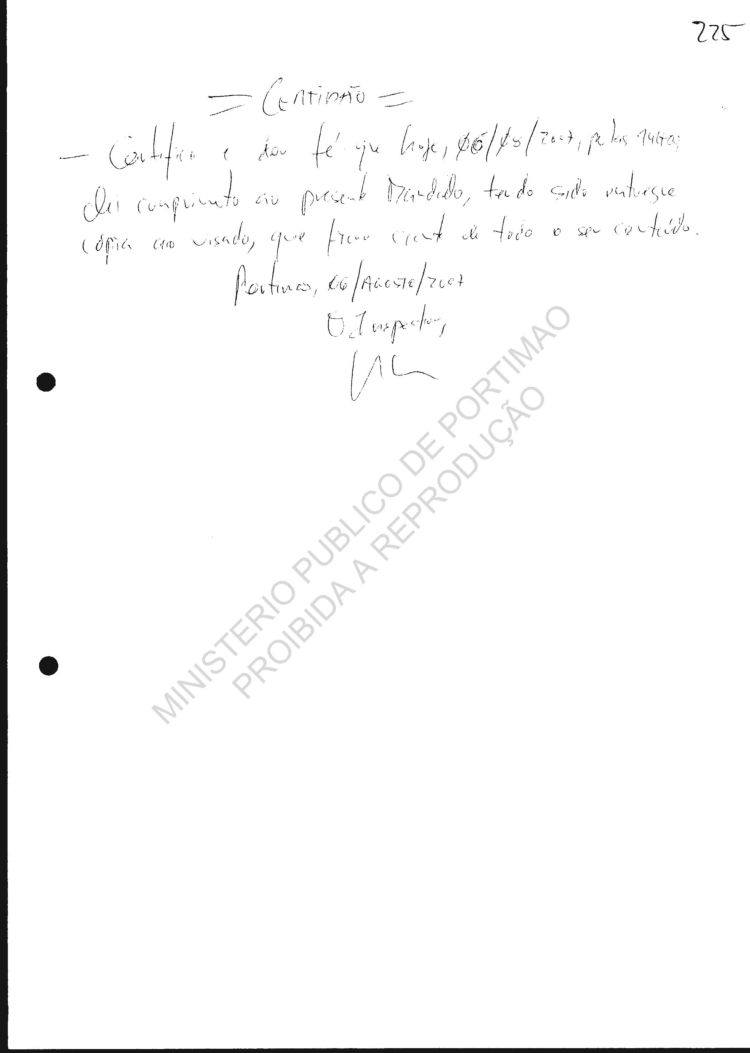 225
= CERTIDÃO =
— Certifico e dou fé que hoje, 06/08/2007, pelas
dei cumprimento ao presente Mandado, tendo sido entregue
cópia ao visado, que ficou ciente de todo o seu conteúdo.
Portimão, 06/AGOSTO/2007
O Inspector,
MINISTERIO PUBLICO DE PORTIMAO
PROIBIDA A REPRODUÇÃO